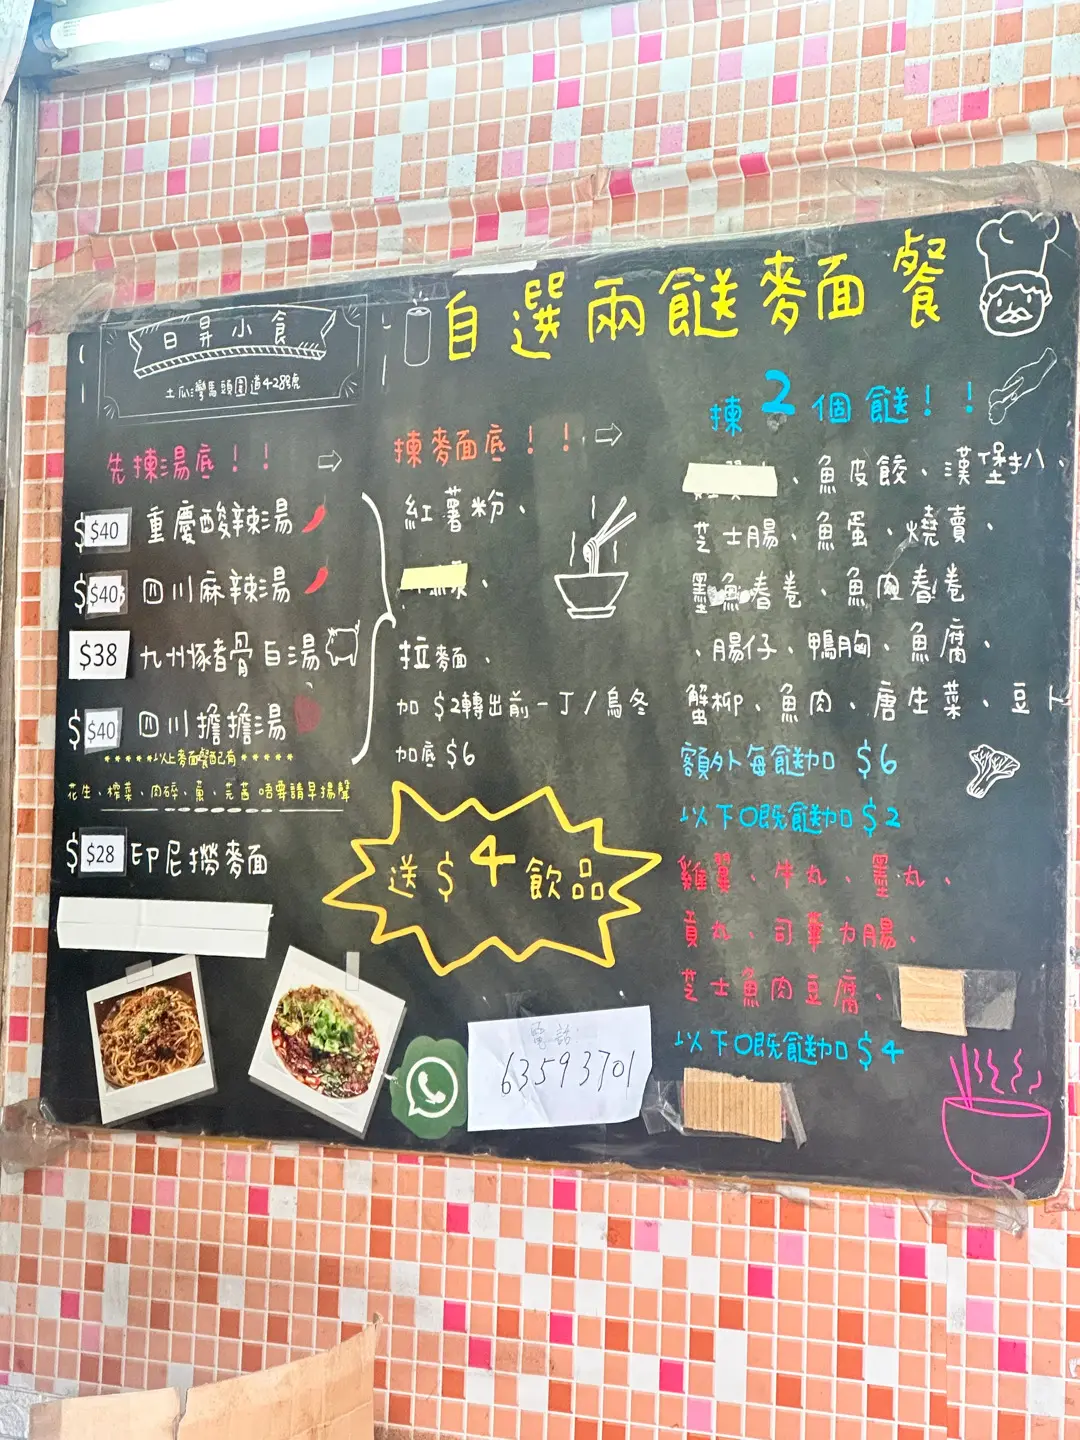 自選兩餸麥面餐
日昇小食
土瓜灣馬頭圍道428號
先揀湯底！！
$40 重慶酸辣湯
$40 四川麻辣湯
$38 九州豚骨白湯
$40 四川擔擔湯
*****以上麥面餐配有*****
花生、榨菜、肉碎、蔥、芫茜 唔要請早揚聲
$28 印尼撈麥面
揀麥面底！！
紅薯粉、
拉麵、
加 $2轉出前一丁/烏冬
加底 $6
送 $4 飲品
電話:
63593701
揀2個餸！！
、魚皮餃、漢堡扒、
芝士腸、魚蛋、燒賣、
墨魚春卷、魚肉春卷
、腸仔、鴨胸、魚腐、
蟹柳、魚肉、唐生菜、豆卜
額外每餸加 $6
以下嘅餸加 $2
雞翼、牛丸、墨丸、
貢丸、司華力腸、
芝士魚肉豆腐、
以下嘅餸加 $4